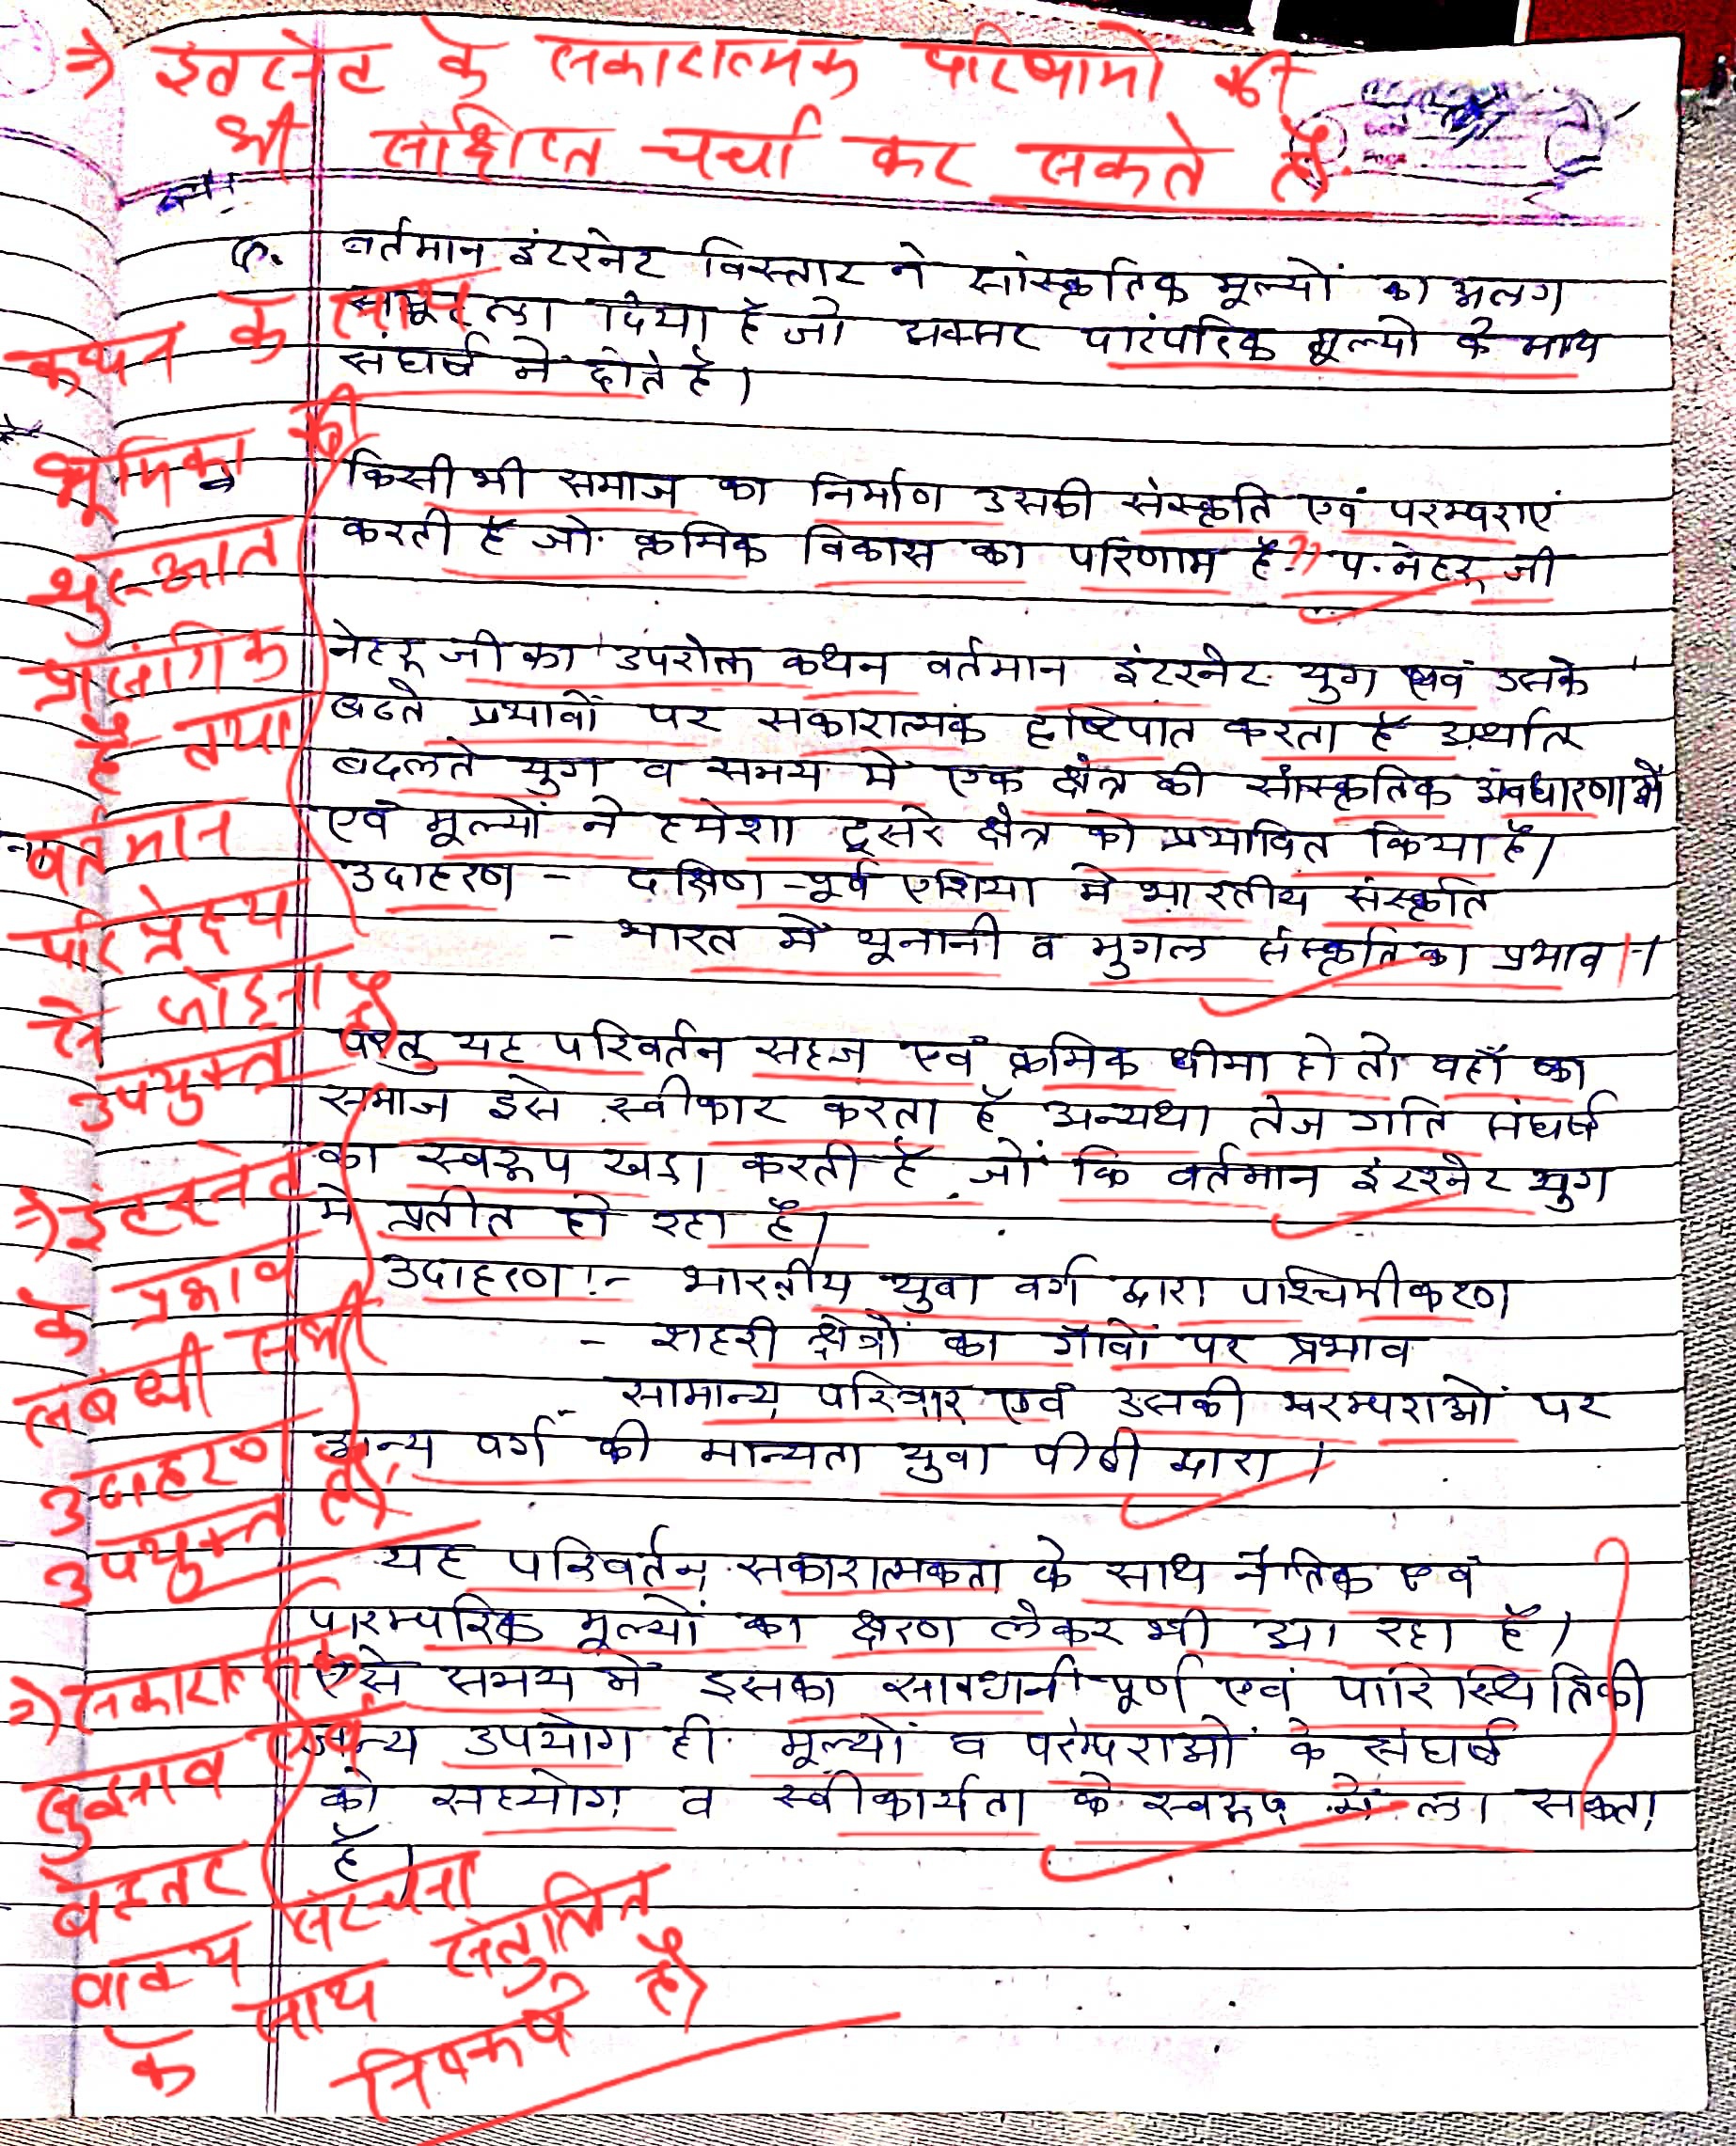 ⇒ इंटरनेट के सकारात्मक परिणामों की
भी संक्षिप्त चर्चा कर सकते हैं.
Q. वर्तमान इंटरनेट विस्तार ने सांस्कृतिक मूल्यों का अलग
समूह ला दिया है जो अक्सर पारंपरिक मूल्यो के साथ
संघर्ष मे होते है।
किसी भी समाज का निर्माण उसकी संस्कृति एवं परम्पराएं
करती है जो क्रमिक विकास का परिणाम है." प. नेहरू जी
नेहरू जी का उपरोक्त कथन वर्तमान इंटरनेट युग एवं उसके
बढते प्रभावों पर सकारात्मक दृष्टिपात करता है अर्थात
बदलते युग व समय मे एक क्षेत्र की सांस्कृतिक अवधारणाओं
एवं मूल्यों ने हमेशा दूसरे क्षेत्र को प्रभावित किया है।
उदाहरण - दक्षिण-पूर्व एशिया मे भारतीय संस्कृति
- भारत में यूनानी व मुगल संस्कृति का प्रभाव।
परंतु यह परिवर्तन सहज एवं क्रमिक धीमा हो तो वहाँ का
समाज इसे स्वीकार करता है अन्यथा तेज गति संघर्ष
का स्वरूप खड़ा करती है जो कि वर्तमान इंटरनेट युग
मे प्रतीत हो रहा है।
उदाहरण :- भारतीय युवा वर्ग द्वारा पाश्चिमीकरण
- शहरी क्षेत्रों का गाँवों पर प्रभाव
- सामान्य परिवार एवं उसकी परम्पराओं पर
अन्य वर्ग की मान्यता युवा पीढी द्वारा।
यह परिवर्तन सकारात्मकता के साथ नैतिक एवं
पारम्परिक मूल्यों का क्षरण लेकर भी आ रहा है।
ऐसे समय में इसका सावधानी पूर्ण एवं पारिस्थितिकी
जन्य उपयोग ही मूल्यों व परंपराओं के संघर्ष
को सहयोग व स्वीकार्यता के स्वरूप मे ला सकता
है।
कथन के साथ
भूमिका की
शुरुआत
प्रासंगिक
है तथा
वर्तमान
परिप्रेक्ष्य
से जोड़ना
उपयुक्त है
⇒ इंटरनेट
के प्रभाव
संबंधी सभी
उदाहरण
उपयुक्त है,
⇒ सकारात्मक
सुझाव एवं
बेहतर
वाक्य संरचना
के साथ संतुलित
निष्कर्ष है